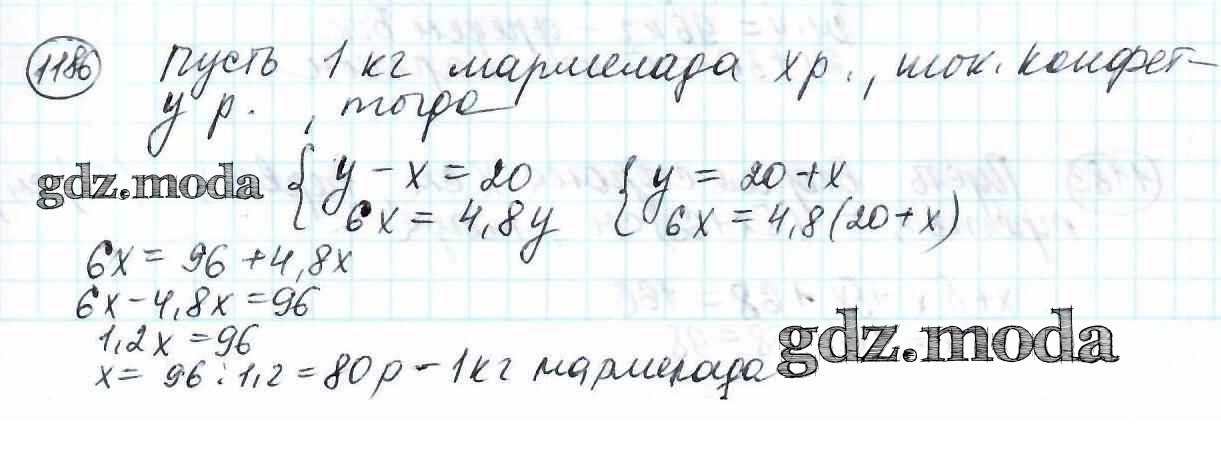 1186 Пусть 1 кг мармелада х р., шок. конфет-
у р., тогда
gdz.moda { у - х = 20 { у = 20 + х
6х = 4,8у 6х = 4,8(20+х)
6х = 96 + 4,8х
6х - 4,8х = 96
1,2х = 96
х = 96 : 1,2 = 80р - 1кг мармелада
gdz.moda